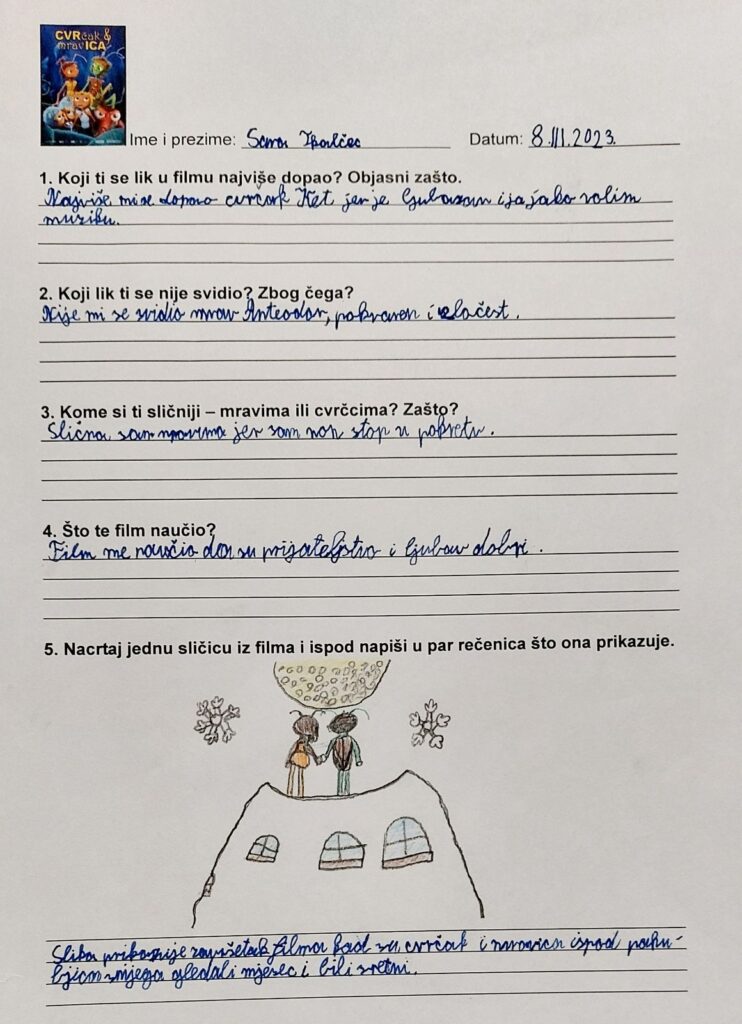 CVRčak &
mravICA
Ime i prezime: Sara Datum: 8.III.2023.
1. Koji ti se lik u filmu najviše dopao? Objasni zašto.
Najviše mi se dopao cvrčak Ket jer je ljubazan i ja jako volim
muziku.
2. Koji lik ti se nije svidio? Zbog čega?
Nije mi se svidio mrav Anteodor, pokvaren i zločest.
3. Kome si ti sličniji – mravima ili cvrčcima? Zašto?
Slična sam mravima jer sam non stop u pokretu.
4. Što te film naučio?
Film me naučio da su prijateljstvo i ljubav dobri.
5. Nacrtaj jednu sličicu iz filma i ispod napiši u par rečenica što ona prikazuje.
Slika prikazuje završetak filma kad su cvrčak i mravica ispod pahu-
ljicom snijega gledali mjesec i bili sretni.